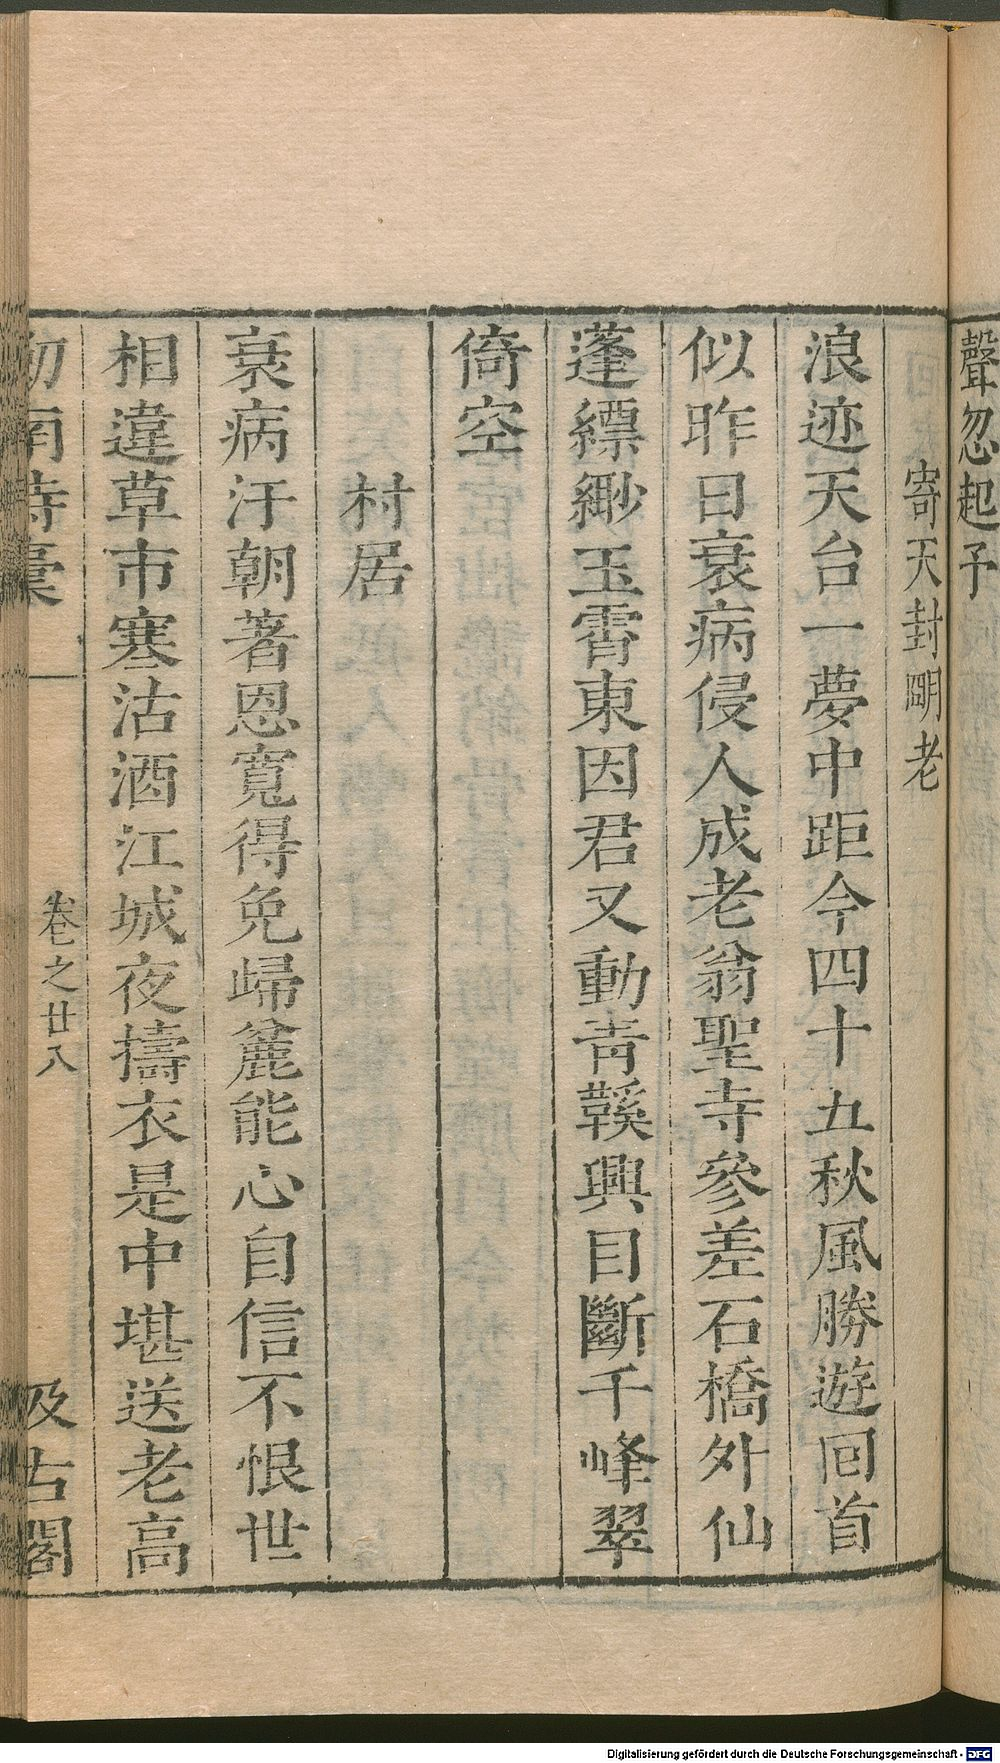 聲忽起予
寄天封明老
浪迹天台一夢中距今四十五秋風勝遊回首
似昨日衰病侵人成老翁聖寺參差石橋外仙
蓬縹緲玉霄東因君又動青鞵興目斷千峰翠
倚空
村居
衰病汙朝著恩寬得免歸麄能心自信不恨世
相違草市寒沽酒江城夜擣衣是中堪送老高
劒南詩稾
卷之廿八
汲古閣
Digitalisierung gefördert durch die Deutsche Forschungsgemeinschaft - DFG